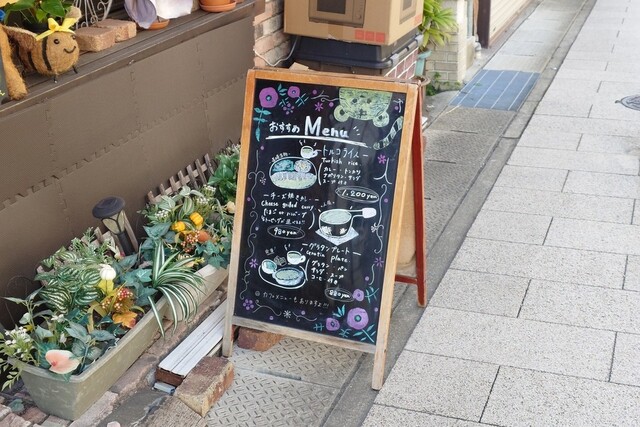 おすすめ Menu
トルコライス
Turkish rice
カレー・トンカツ
ナポリタン・サラダ
スープ 付き
1,200yen
チーズ焼きカレー
Cheese grilled curry
980yen
グラタンプレート
Gratin plate
グラタン パン
サラダ スープ
コーヒー 付き
880yen
カフェメニューもあります